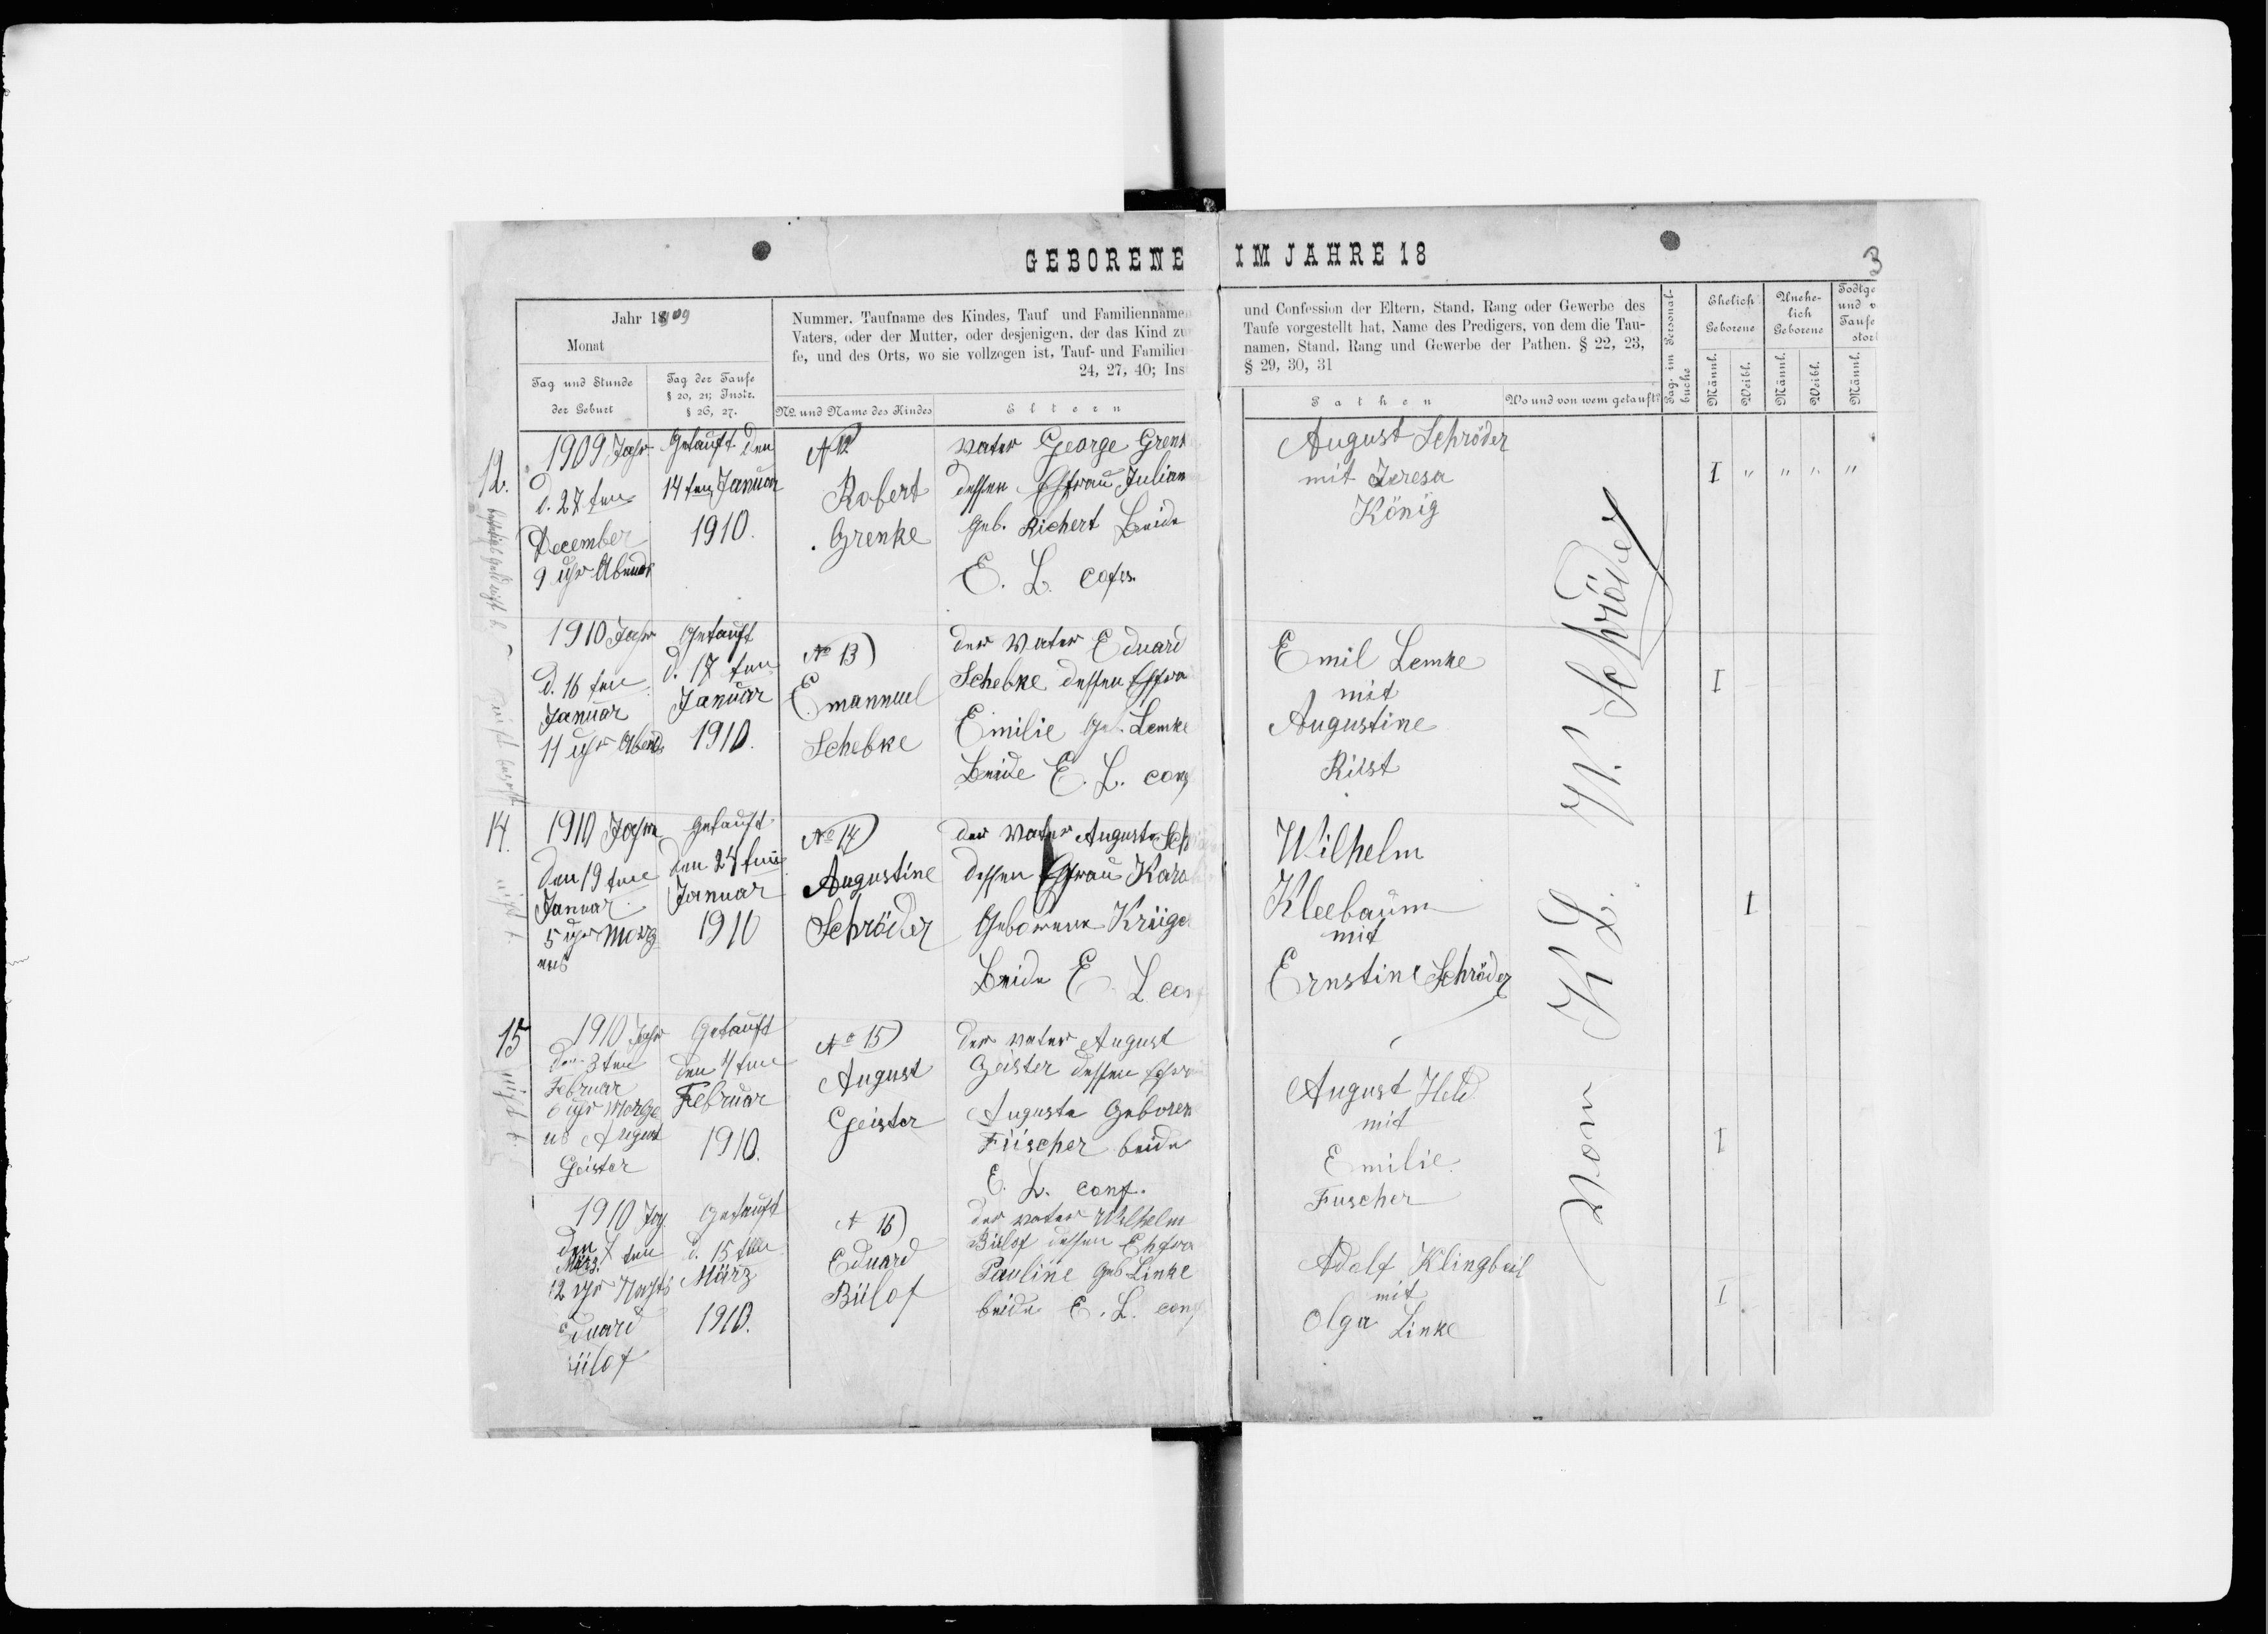 GEBORENE IM JAHRE 18
3
Jahr 1909
Monat
Tag und Stunde
der Geburt
Tag der Taufe
§ 20, 21; Instr.
§ 26, 27.
Nummer. Taufname des Kindes, Tauf und Familiennamen
Vaters, oder der Mutter, oder desjenigen, der das Kind zur
fe, und des Orts, wo sie vollzogen ist, Tauf- und Familien-
24, 27, 40; Ins
No. und Name des Kindes
Eltern
und Confession der Eltern, Stand, Rang oder Gewerbe des
Taufe vorgestellt hat, Name des Predigers, von dem die Tau-
namen, Stand, Rang und Gewerbe der Pathen. § 22, 23,
§ 29, 30, 31
Pathen
Wo und von wem getauft?
Pag. im Personal-
buche
Ehelich
Geborene
Männl.
Weibl.
Unehe-
lich
Geborene
Männl.
Weibl.
Todtge
und v
Taufe
stor
Männl.
12.
1909 Jahr
d. 27 ten
December
9 uhr Abends
Getauft den
14 ten Januar
1910.
N 12
Robert
Grenke
Vater George Grenk
dessen Ehfrau Julian
geb. Richert Beide
E. L. cofes.
August Schröder
mit Teresa
König
I " " " "
1910 Jahr
d. 16 ten
Januar
11 uhr Abends
Getauft
d. 17 ten
Januar
1910.
No 13)
Emannuel
Schebke
der Vater Eduard
Schebke dessen Ehfra
Emilie Geb. Lemke
Beide E. L. conf
Emil Lemke
mit
Augustine
Rüst
I
14.
1910 Jahre
den 19 ten
Januar
5 uhr Morg
ens
Getauft
den 24 ten
Januar
1910
No 14)
Augustine
Schröder
der Vater August Sch
dessen Ehfrau Karo
Geborene Krüge
Beide E. L. conf
Wilhelm
Kleebaum
mit
Ernstine Schröder
I
15
1910 Jahr
den 3 ten
Februar
6 uhr Morge
ns August
Geister
Getauft
den 4 ten
Februar
1910.
No 15)
August
Geister
der Vater August
Geister dessen Ehfrau
Auguste Geboren
Füscher beide
E. L. conf.
August Held
mit
Emilie
Fuscher
I
1910 Jah
den 7 ten
März.
12 uhr Nachts
Eduard
Bülof
Getauft
d. 15 ten
März
1910.
N 16)
Eduard
Bülof
der Vater Wilhelm
Bülof dessen Ehfra
Pauline Geb. Linke
beide E. L. conf
Adolf Klingbeil
mit
Olga Linke
I
Vom K L. W. Schröder